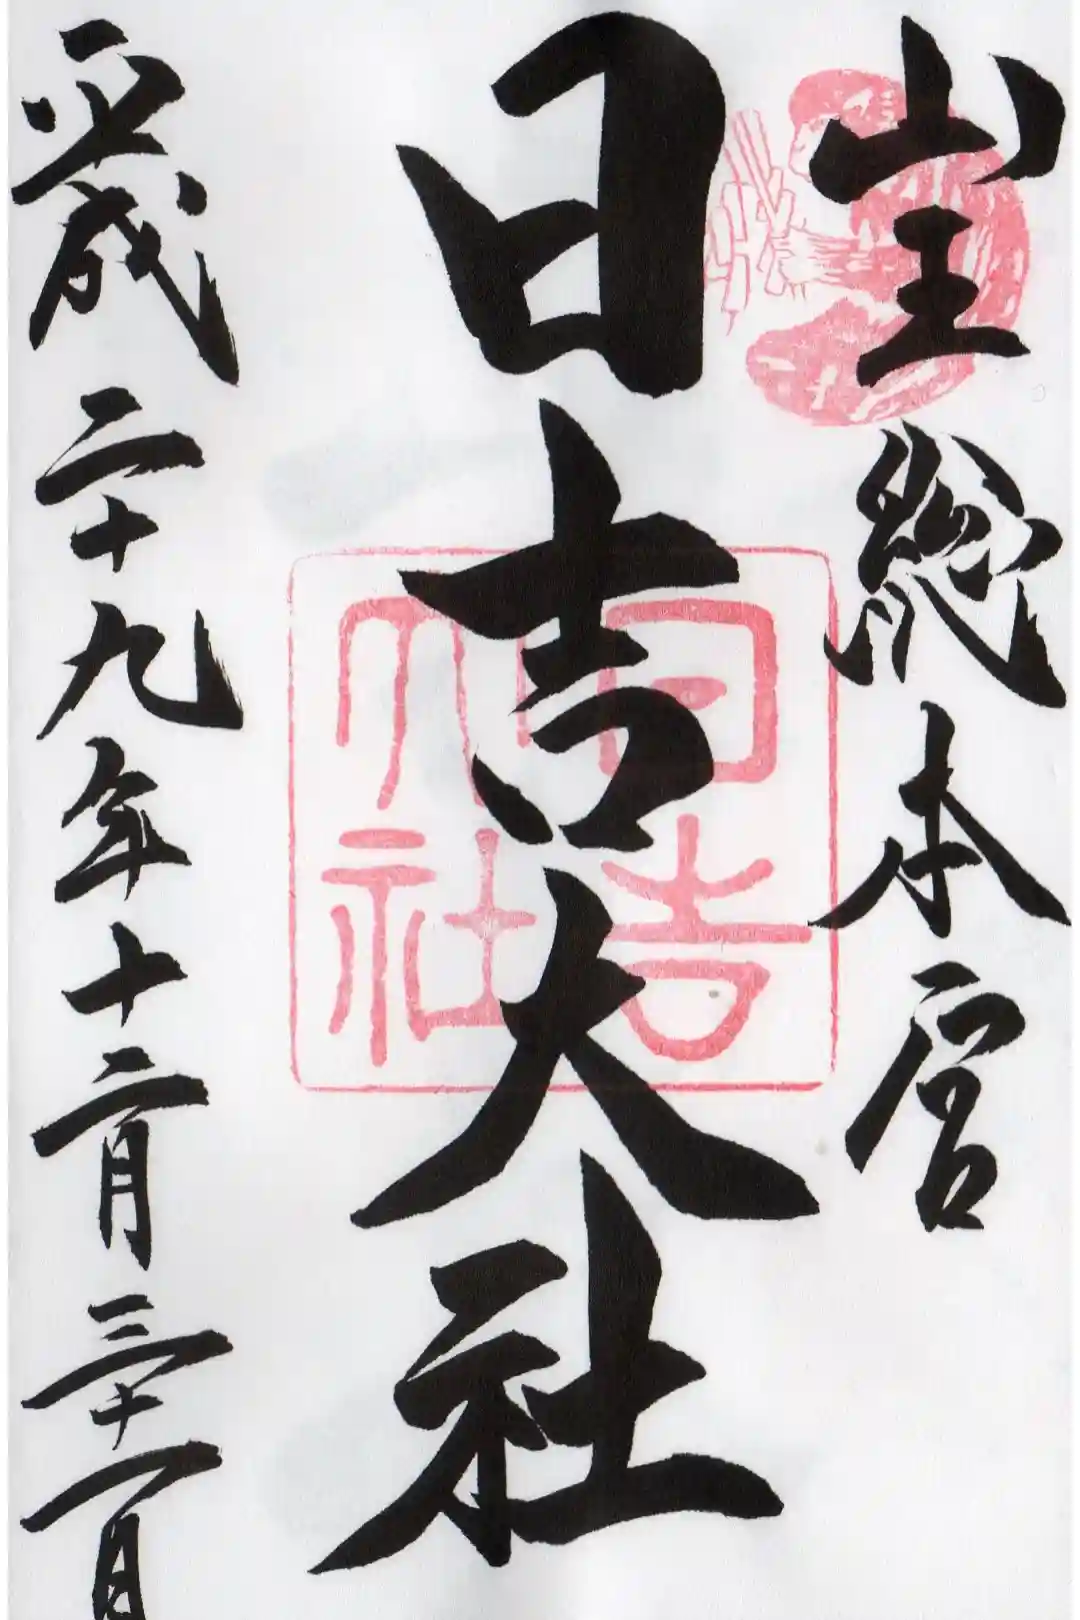 山王総本宮
日吉大社
日吉大社
平成二十九年十二月三十一日